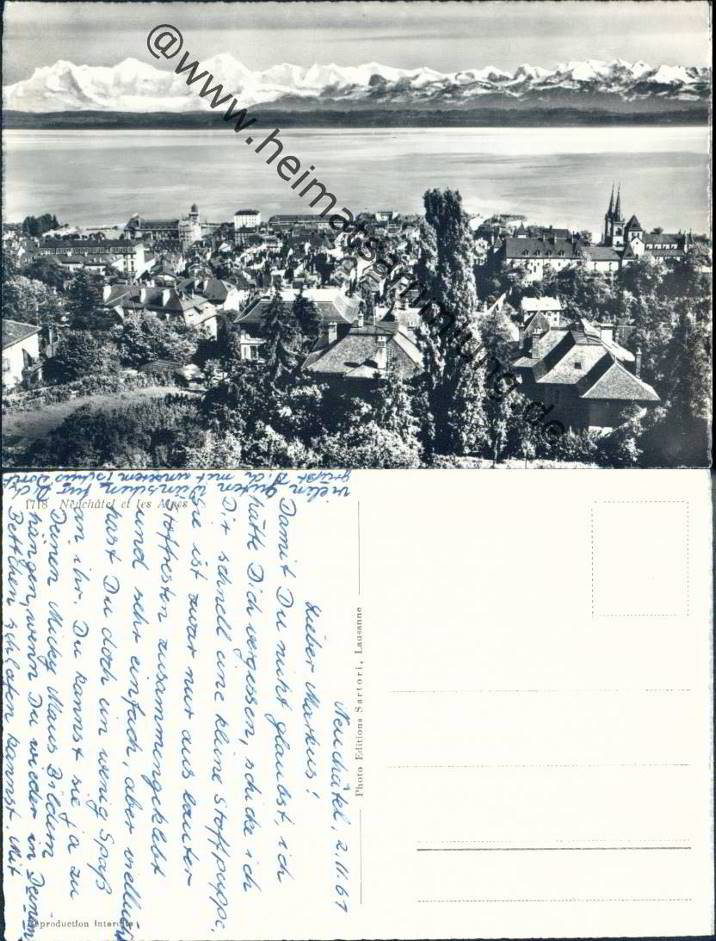 @www.heimatsammlung.de
1718 Neuchâtel et les Alpes
Photo Editions Sartori, Lausanne
Reproduction Interdite
Neuchâtel, 2.11.61
Lieber Markus!
Damit Du nicht glaubst, ich
hätte Dich vergessen, schicke ich
Dir schnell eine kleine Stoffpuppe.
Sie ist zwar nur aus lauter
Stoffresten zusammengeklebt
und sehr einfach, aber vielleicht
hast Du doch ein wenig Spaß
an ihr. Du kannst sie ja zu
Deinen Micky Maus Bildern
hängen, wenn Du wieder in Deinem
Bettchen schlafen kannst. Mit
vielen guten Wünschen für Dich
grüsst Dich mit unserem